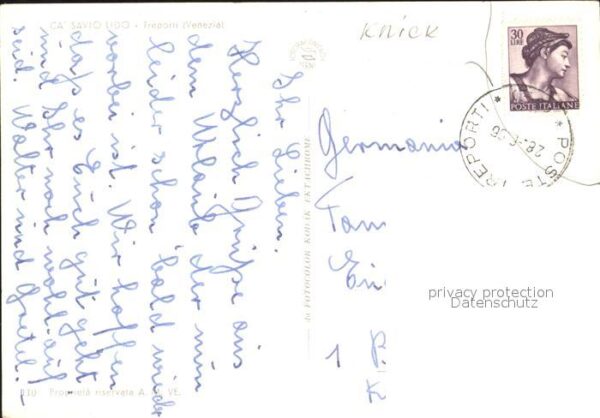 CA' SAVIO LIDO - Treporti (Venezia)
KNICK
30
LIRE
POSTE ITALIANE
POSTE TREPORTI
28-
Ihr Lieben.
Herzlich Grüße aus
dem Urlaub der nun
leider schon bald wieder
vorbei ist. Wir hoffen
daß es Euch gut geht
und Ihr noch wohl auf
seid. Walter und Gretel. -
Germania
Fam
Ein
1
P.
K
da FOTOCOLOR KODAK EKTACHROME
privacy protection
Datenschutz
Proprietà riservata A. VE.